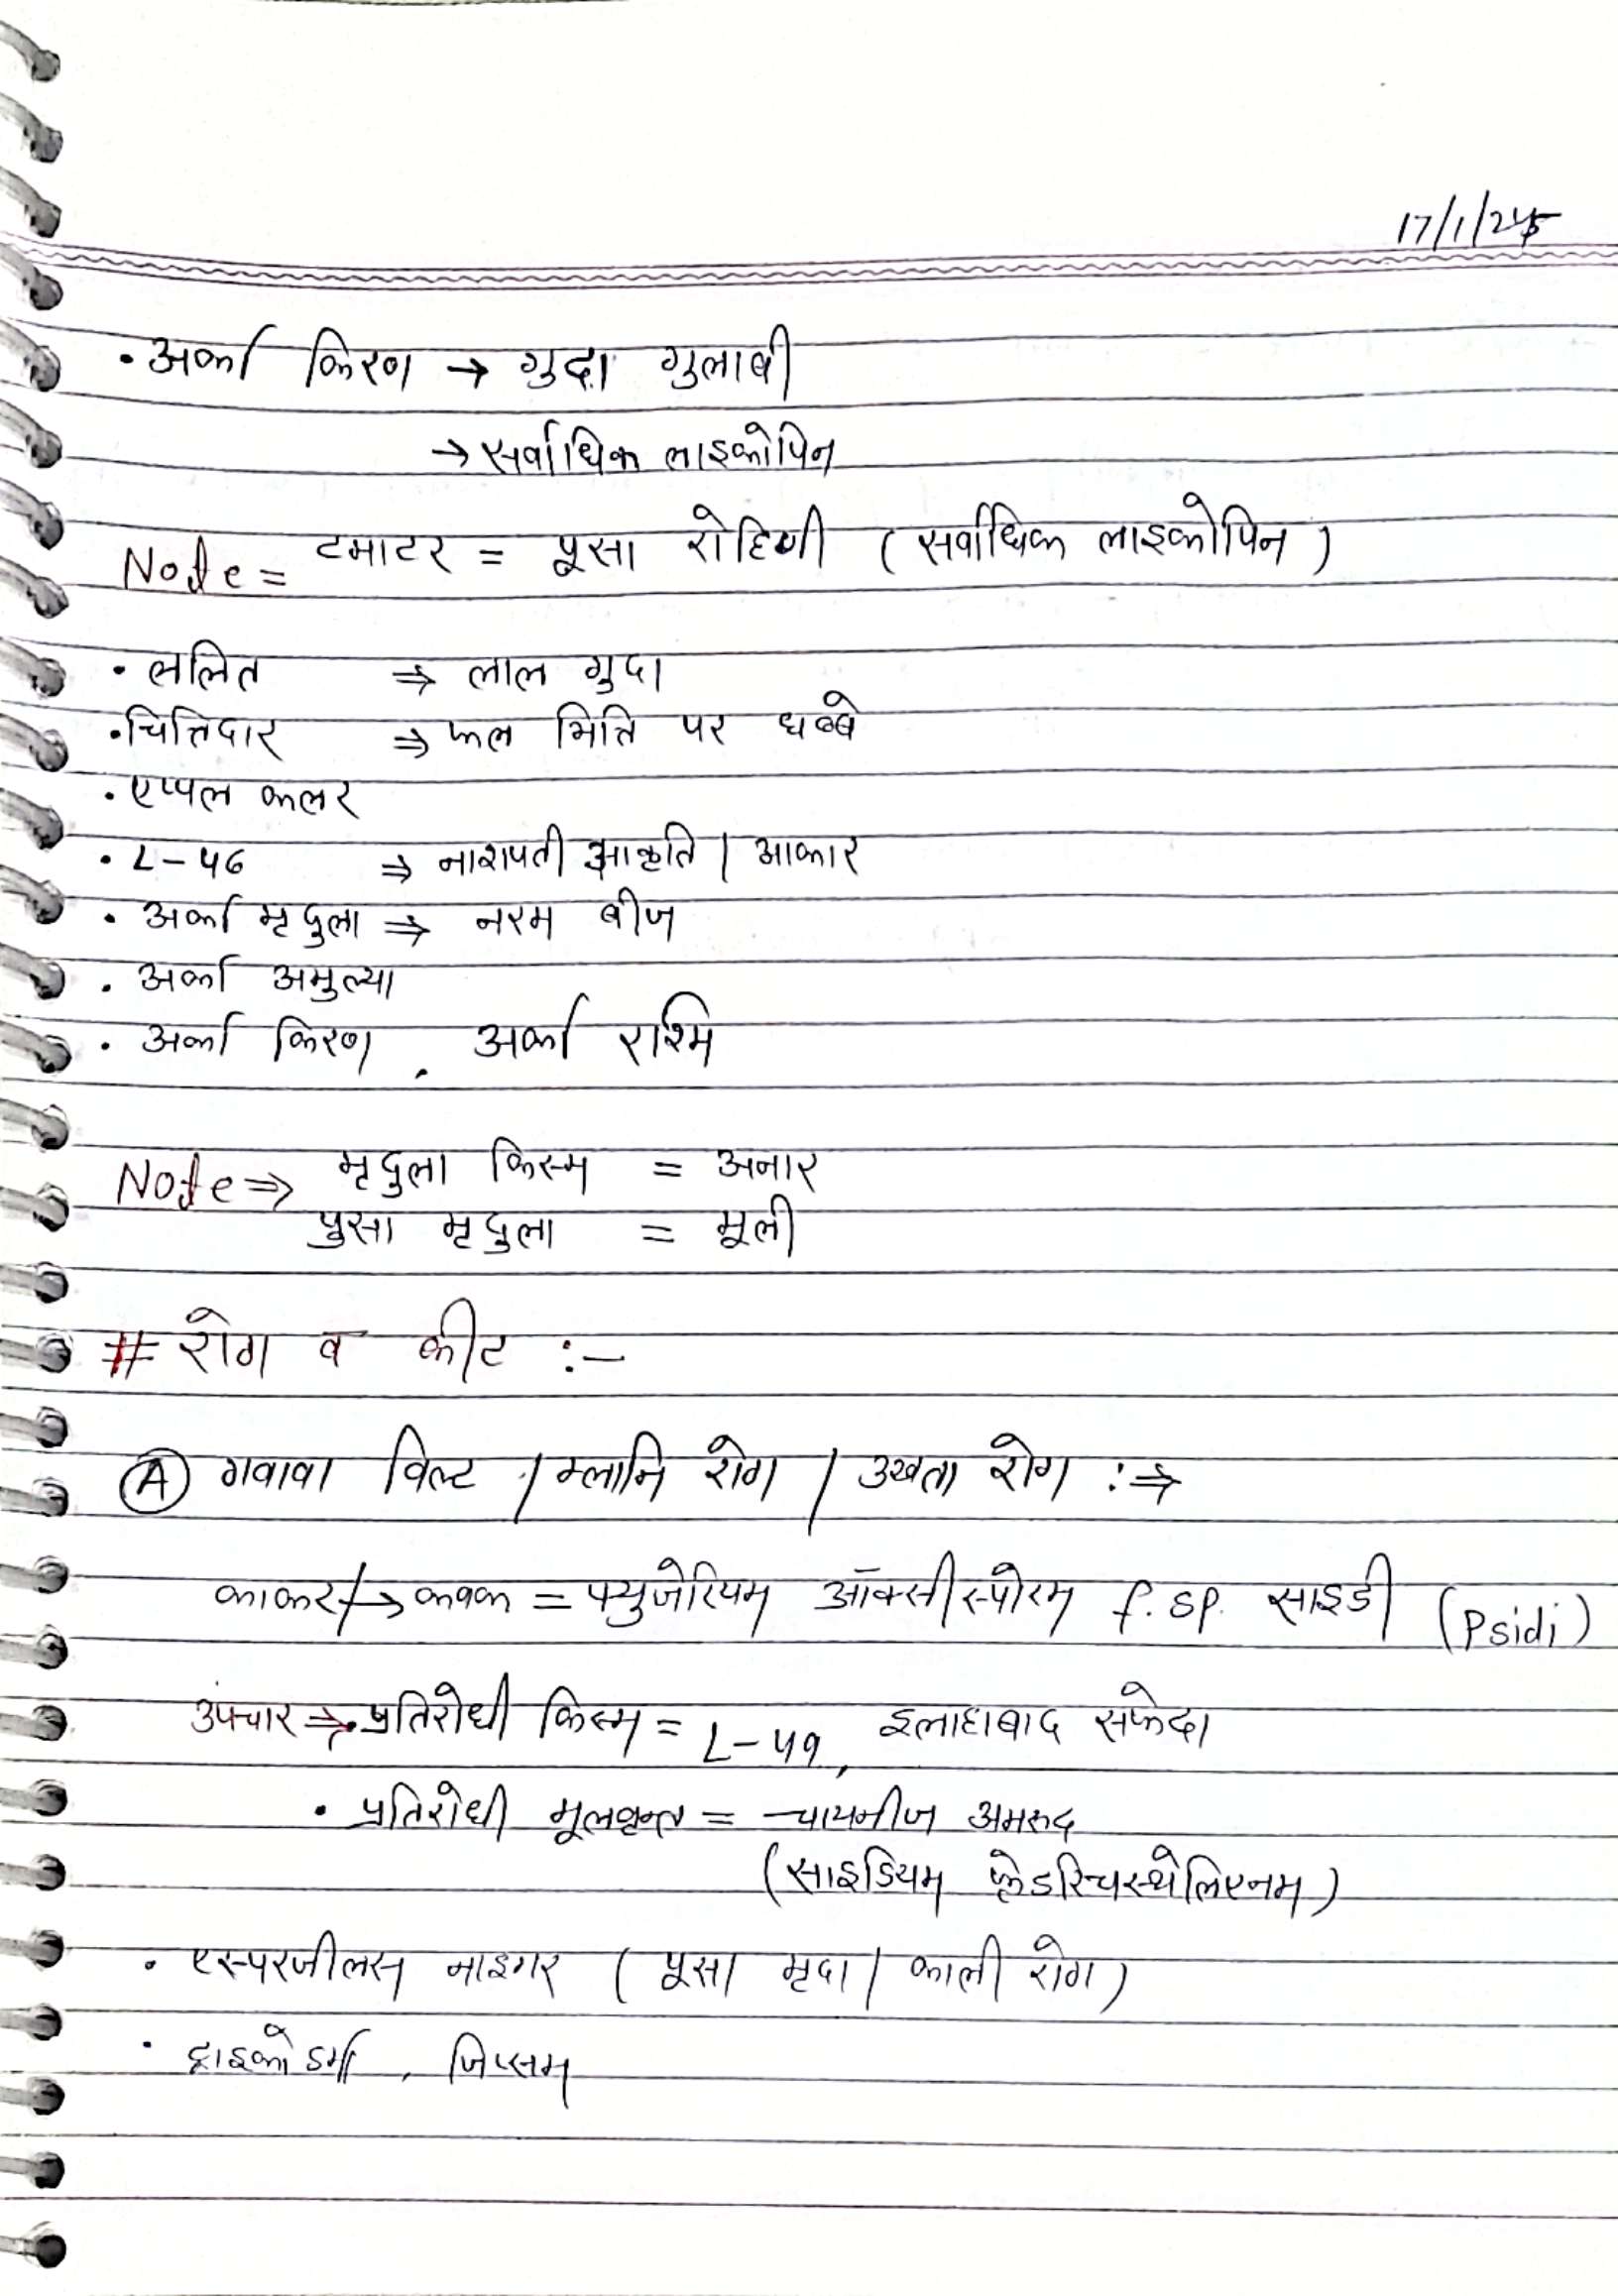 17/1/25
• अर्का किरण → गुदा गुलाबी
→ सर्वाधिक लाइकोपिन
Note = टमाटर = पूसा रोहिणी (सर्वाधिक लाइकोपिन)
• ललित ⇒ लाल गुदा
• चित्तिदार ⇒ फल भित्ति पर धब्बे
• एप्पल कलर
• L-46 ⇒ नाशपती आकृति / आकार
• अर्का मृदुला ⇒ नरम बीज
• अर्का अमुल्या
• अर्का किरण . अर्का रश्मि
Note ⇒ मृदुला किस्म = अनार
पुसा मृदुला = मूली
# रोग व कीट :-
(A) गवावा विल्ट / म्लानि रोग / उखता रोग :⇒
काकर → कवक = फ्युजेरियम ऑक्सीस्पोरम f. sp. साइडी (Psidi)
उपचार ⇒ • प्रतिरोधी किस्म = L-49, इलाहाबाद सफेदा
• प्रतिरोधी मूलवृन्त = चायनीज अमरूद
(साइडियम फ्रेडरिचस्थेलिएनम)
• एस्परजीलस नाइगर (पूसा मृदा / काली रोग)
• ट्राइकोडर्मा , जिप्सम